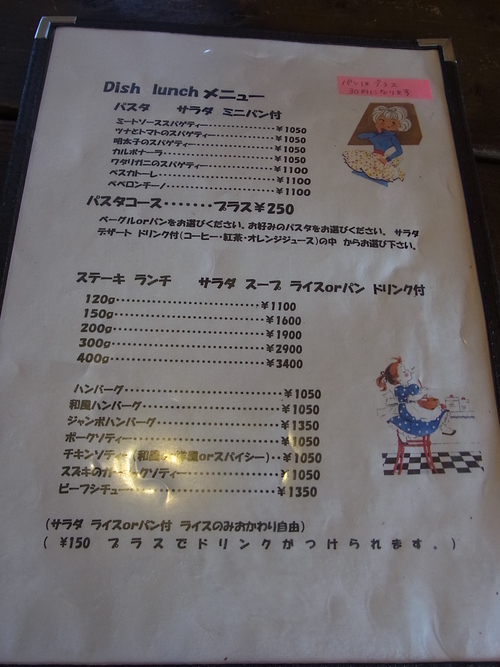 Dish lunch メニュー
パンはプラス
30円になります
パスタ サラダ ミニパン付
ミートソーススパゲティー・・・・・・・・・・・・・・・¥1050
ツナとトマトのスパゲティー・・・・・・・・・・・・¥1050
明太子のスパゲティー・・・・・・・・・・・・・・・・・・¥1050
カルボナーラ・・・・・・・・・・・・・・・・・・・・・・・・・・¥1050
ワタリガニのスパゲティー・・・・・・・・・・・・・・¥1100
ペスカトーレ・・・・・・・・・・・・・・・・・・・・・・・・・・¥1100
ペペロンチーノ・・・・・・・・・・・・・・・・・・・・・・・・¥1100
パスタコース・・・・・・・・プラス¥250
ベーグルorパンをお選びください。お好みのパスタをお選びください。 サラダ
デザート ドリンク付(コーヒー・紅茶・オレンジジュース)の中 からお選び下さい。
ステーキ ランチ サラダ スープ ライスorパン ドリンク付
120g・・・・・・・・・・・・・・・・・・・・・・・・¥1100
150g・・・・・・・・・・・・・・・・・・・・・・・・¥1600
200g・・・・・・・・・・・・・・・・・・・・・・・・¥1900
300g・・・・・・・・・・・・・・・・・・・・・・・・¥2900
400g・・・・・・・・・・・・・・・・・・・・・・・・¥3400
ハンバーグ・・・・・・・・・・・・・・・・・・・・・・・・¥1050
和風ハンバーグ・・・・・・・・・・・・・・・・・・・・¥1050
ジャンボハンバーグ・・・・・・・・・・・・・・・・¥1350
ポークソティー・・・・・・・・・・・・・・・・・・・・¥1050
チキンソティー(和風 洋風orスパイシー)・・¥1050
スズキのガーリックソティー・・・・・・・・・・¥1050
ビーフシチュー・・・・・・・・・・・・・・・・・・・・¥1350
(サラダ ライスorパン付 ライスのみおかわり自由)
( ¥150 プラスでドリンクがつけられます。)